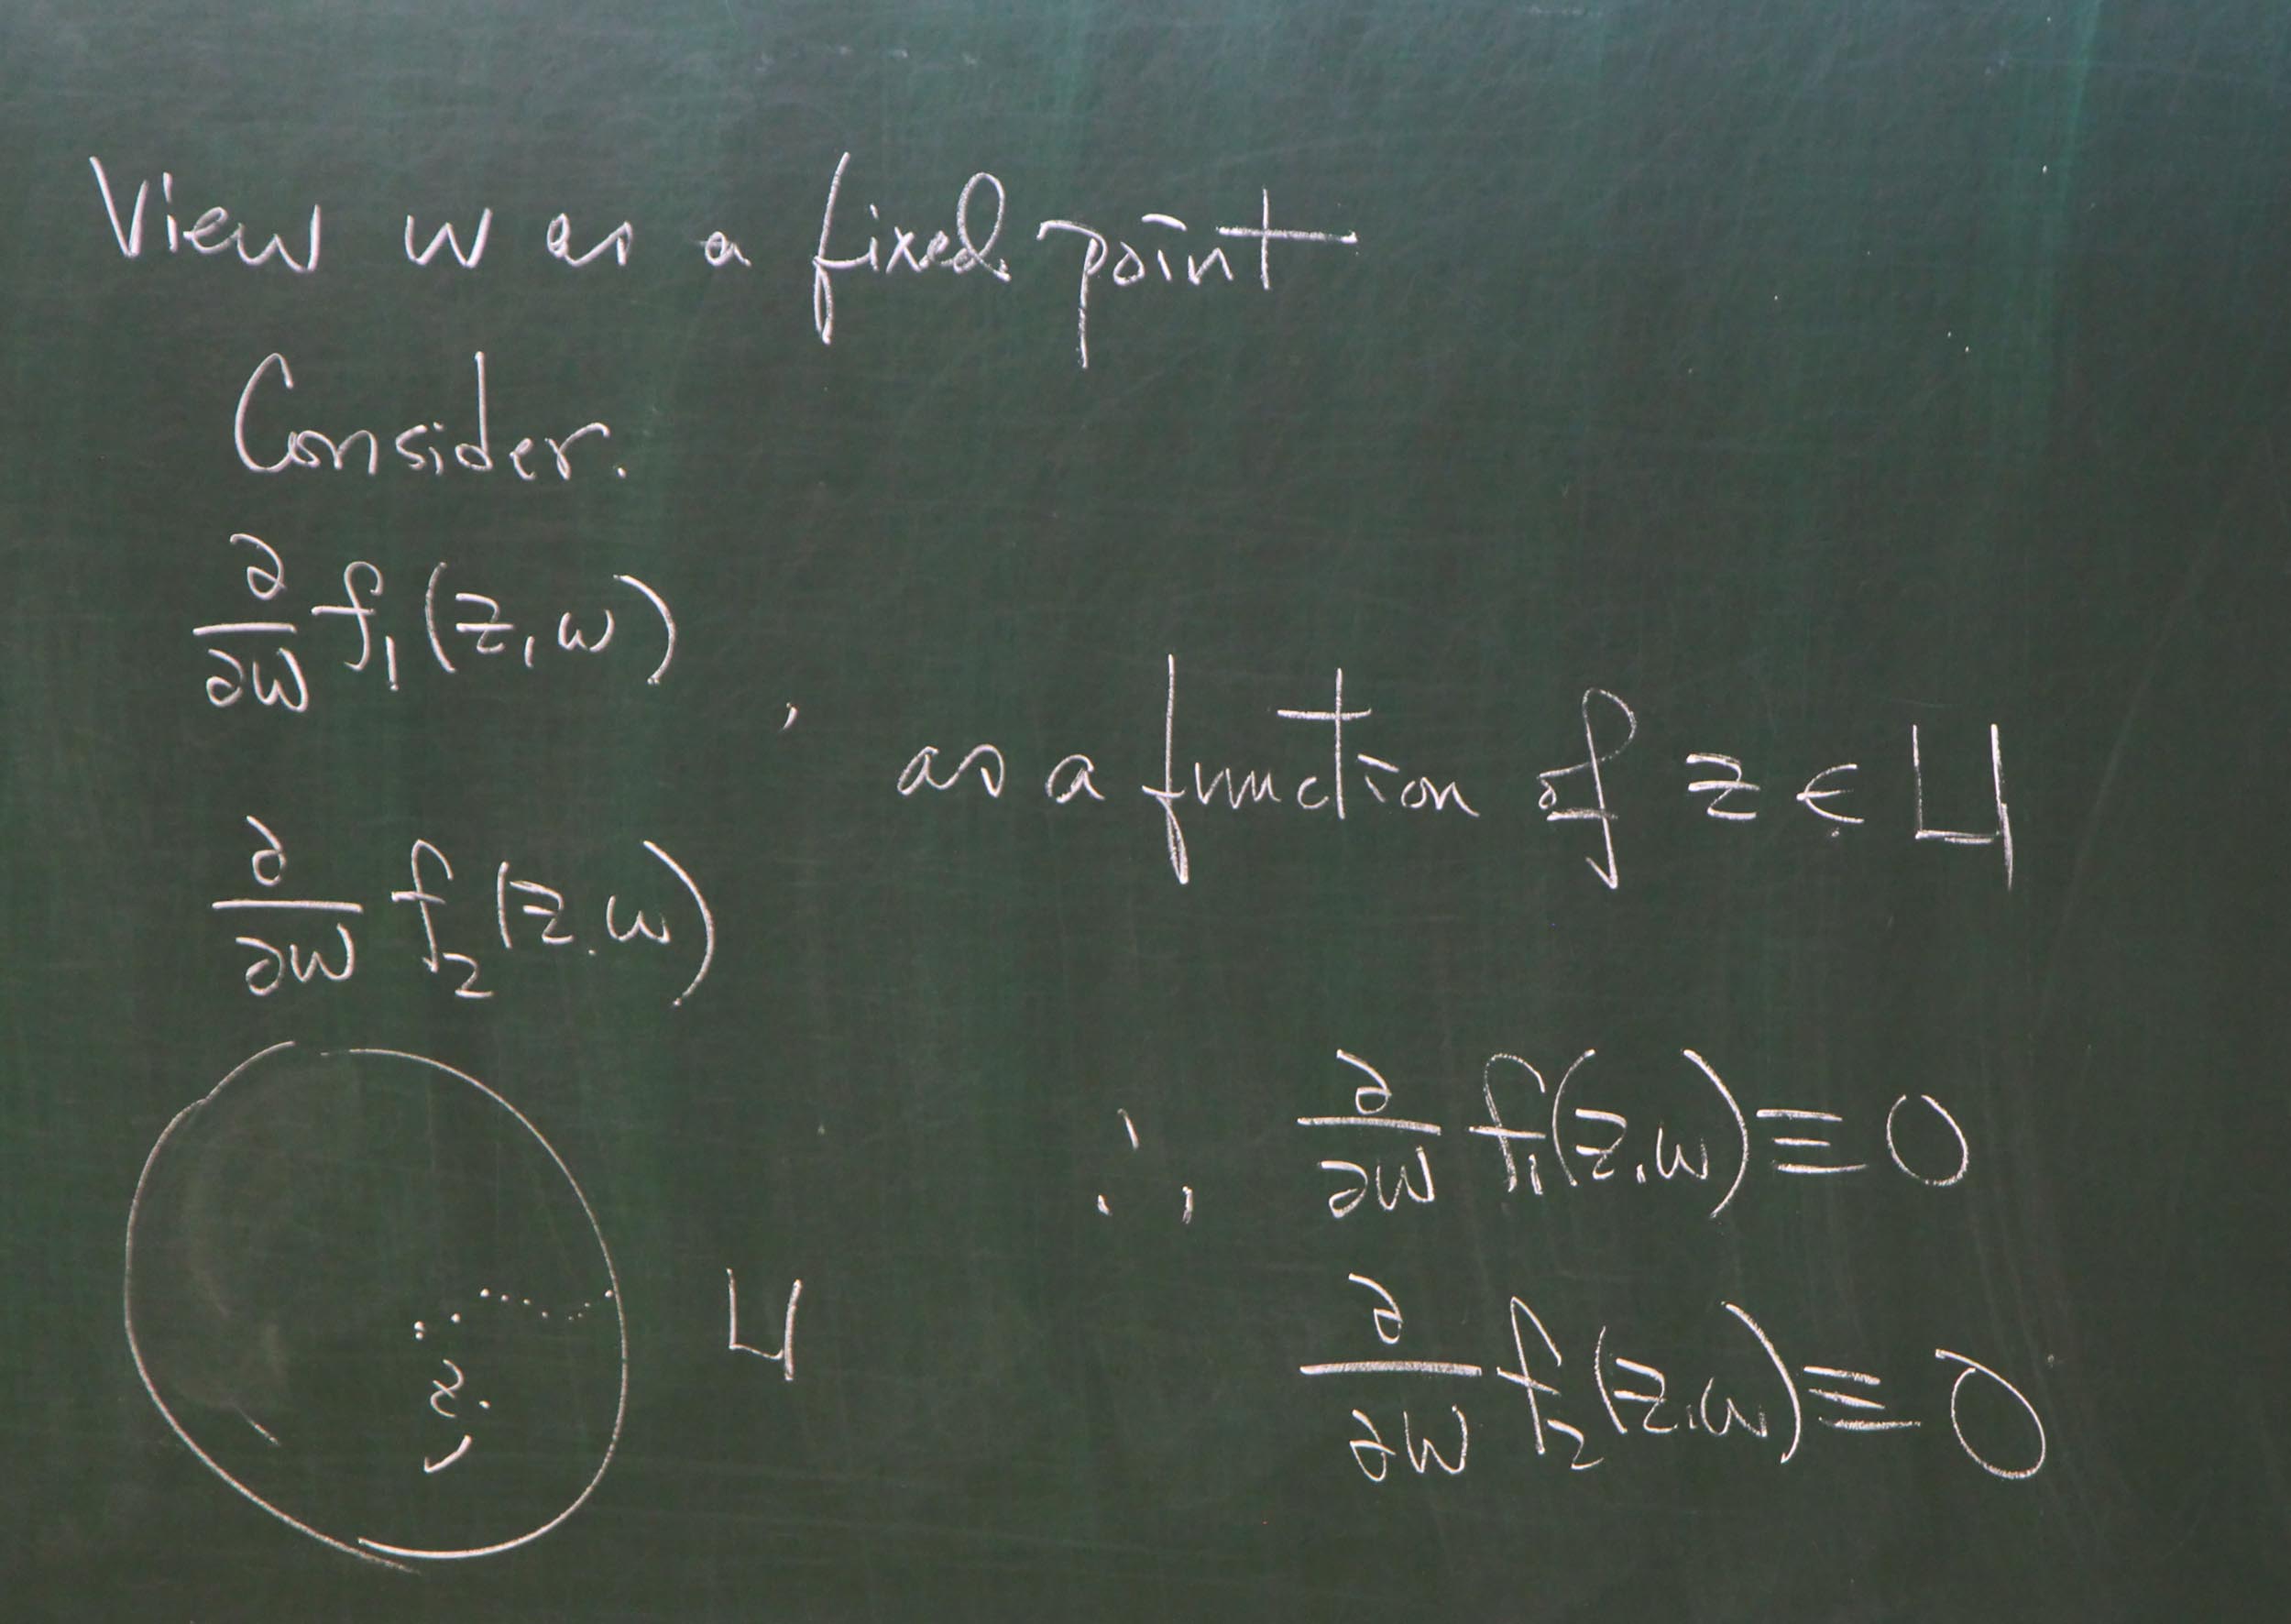 View w as a fixed point
Consider.
∂/∂w f₁(z, w)
, as a function of z ∈ U
∂/∂w f₂(z.w)
∴ ∂/∂w f₁(z.w) ≡ 0
U
z.
∂/∂w f₂(z.w) ≡ 0